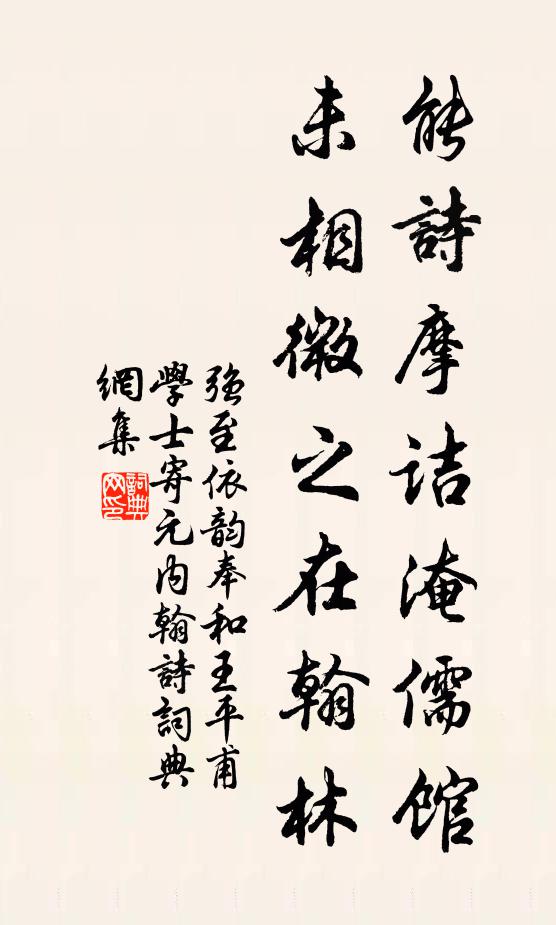 能詩摩詰淹儒館
未相微之在翰林
強至依韵奉和王平甫
學士寄元内翰詩詞典
網集
詞典网印